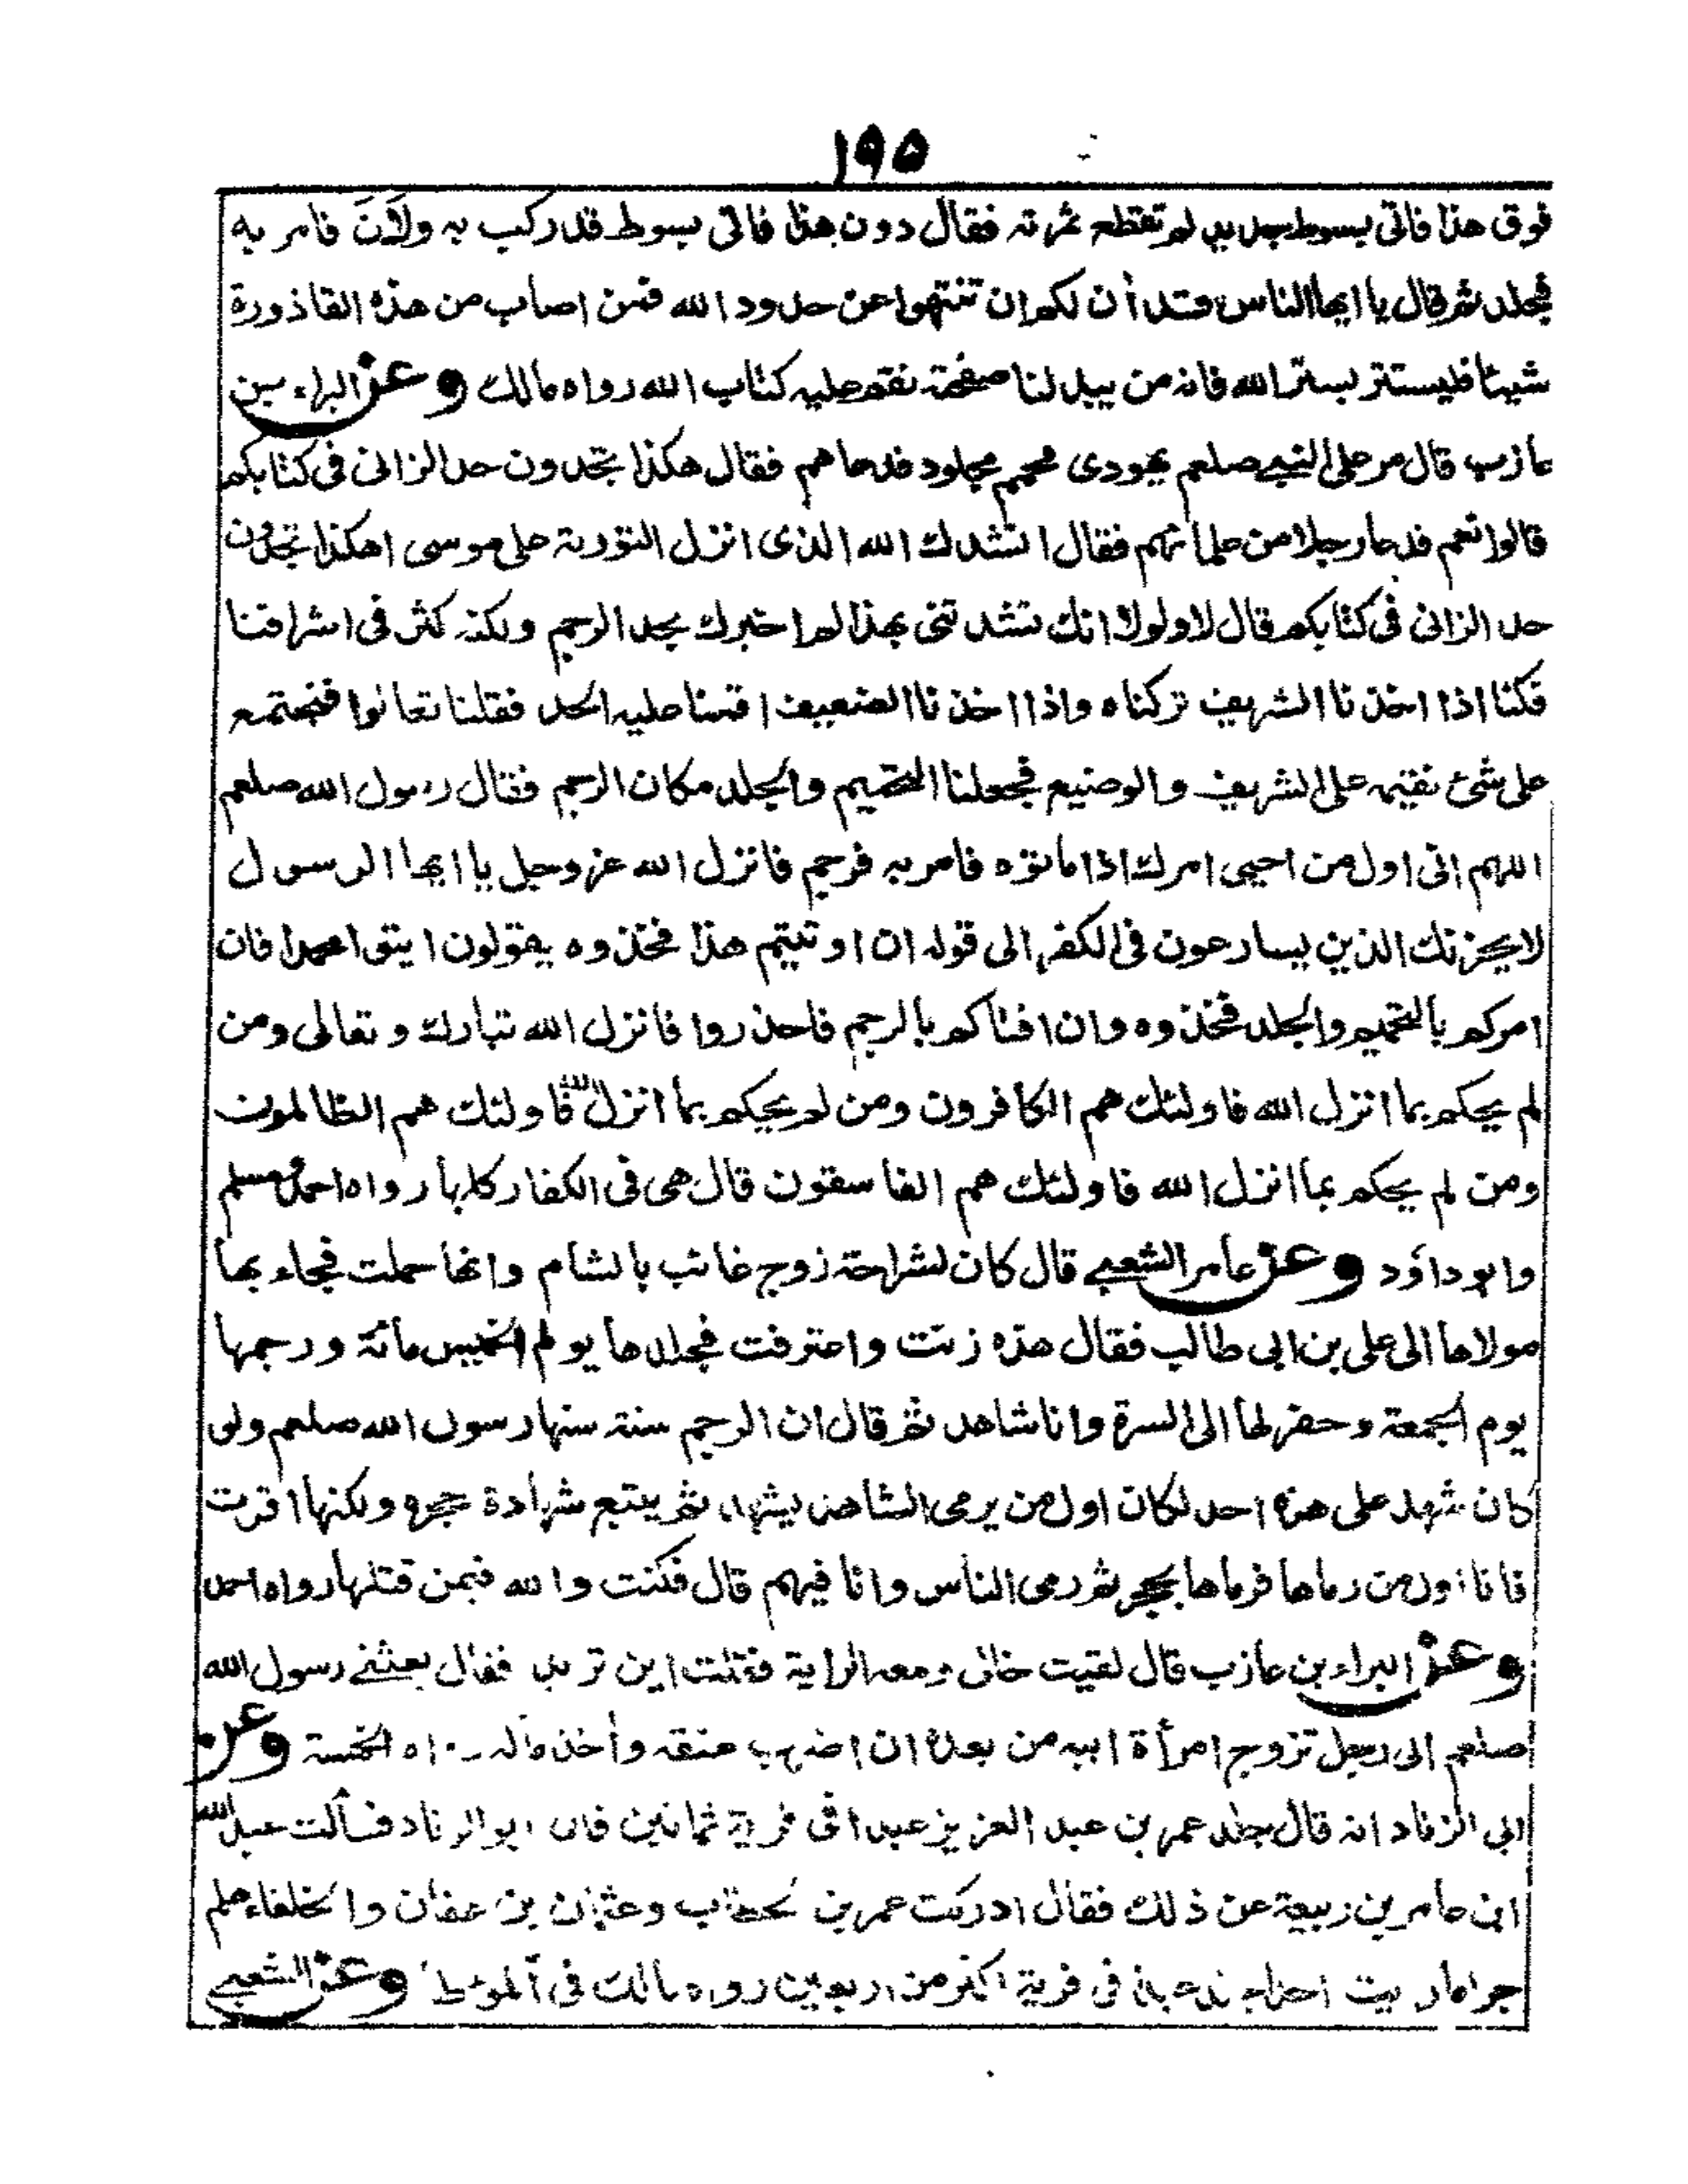 ١٩٥
فوق هذا فاتى بسوط جديد لم تقطع ثمرته فقال دون هذا فاتى بسوط قد ركب به ولان فامر به
فجلد ثم قال يا ايها الناس قد أن لكم ان تنتهوا عن حدود الله فمن اصاب من هذه القاذورة
شيئا فليستتر بستر الله فانه من يبد لنا صفحته نقم عليه كتاب الله رواه مالك وعن البراء بن
عازب قال مر على النبي صلعم يهودى محمم مجلود فدعاهم فقال هكذا تجدون حد الزانى فى كتابكم
قالوا نعم فدعا رجلا من علمائهم فقال انشدك الله الذى انزل التورية على موسى اهكذا تجدون
حد الزانى فى كتابكم قال لا ولولا انك نشدتنى بهذا لم اخبرك بحد الرجم ولكنه كثر فى اشرافنا
فكنا اذا اخذنا الشريف تركناه واذا اخذنا الضعيف اقمنا عليه الحد فقلنا تعالوا فنجتمع
على شئ نقيمه على الشريف والوضيع فجعلنا التحميم والجلد مكان الرجم فقال رسول الله صلعم
اللهم انى اول من احيى امرك اذا ماتوه فامر به فرجم فانزل الله عز وجل يا ايها الرسول
لا يحزنك الذين يسارعون فى الكفر الى قوله ان اوتيتم هذا فخذوه يقولون ايتوا محمدا فان
امركم بالتحميم والجلد فخذوه وان افتاكم بالرجم فاحذروا فانزل الله تبارك وتعالى ومن
لم يحكم بما انزل الله فاولئك هم الكافرون ومن لم يحكم بما انزل الله فاولئك هم الظالمون
ومن لم يحكم بما انزل الله فاولئك هم الفاسقون قال هى فى الكفار كلها رواه احمد ومسلم
وابو داؤد وعن عامر الشعبي قال كان لشراحة زوج غائب بالشام وانها حملت فجاء بها
مولاها الى على بن ابى طالب فقال هذه زنت واعترفت فجلدها يوم الخميس مائة ورجمها
يوم الجمعة وحفر لها الى السرة وانا شاهد ثم قال ان الرجم سنة سنها رسول الله صلعم ولو
كان شهد على هذه احد لكان اول من يرمى الشاهد يشهد ثم يتبع شهادة حجره ولكنها اقرت
فانا اول من رماها فرماها بحجر ثم رمى الناس وانا فيهم قال فكنت والله فيمن قتلها رواه احمد
وعن البراء بن عازب قال لقيت خالى ومعه الراية فقلت اين تريد فقال بعثنى رسول الله
صلعم الى رجل تزوج امرأة ابيه من بعده ان اضرب عنقه وأخذ ماله رواه الخمسة وعن
ابى الزناد انه قال جلد عمر بن عبد العزيز عبدا فى فرية ثمانين قال ابو الزناد فسألت عبد الله
ابن عامر بن ربيعة عن ذلك فقال ادركت عمر بن الخطاب وعثمان بن عفان والخلفاء هلم
جرا ما رايت احدا جلد عبدا فى فرية اكثر من اربعين رواه مالك فى الموطا وعن الشعبي